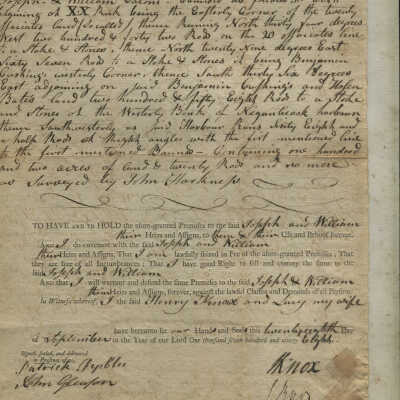 Joseph & William
begining at the Easterly Corner of the twenty
Associates land (so called) thence Running North thirty four degrees
West two hundred & forty two Rods on the 20 associates line
to a Stake & Stones, thence North twenty Nine degrees East
Sixty Seven Rods to a Stake & Stones it being Benjamin
Cushing's westerly Corner, thence South thirty Six Degrees
East adjoining on said Benjamin Cushing's and
Bates land two hundred & fifty Eight Rods to a Stake
and Stones at the Westerly Bank of harbour
thence Southwesterly as said Harbour runs Sixty Eight and
a half Rods at Right angles with the first mentioned line
to the first mentioned Bounds - Containing one hundred
and two acres of land & twenty Rods and no more
as Surveyed by John Harkness
TO HAVE and TO HOLD the afore-granted Premises to the said Joseph and William
their Heirs and Assigns, to them & their Use and Behoof forever.
And I do covenant with the said Joseph and William
their Heirs and Assigns, That I am lawfully seized in Fee of the afore-granted Premises; That
they are free of all Incumbrances; That I have good Right to sell and convey the same to the
said Joseph and William
And that I will warrant and defend the same Premises to the said Joseph & William
their Heirs and Assigns, forever, against the lawful Claims and Demands of all Persons.
In Witness whereof, I the said Henry Knox and Lucy my wife
have hereunto set our Hands and Seals this twenty eighth Day
of September in the Year of our Lord One thousand seven hundred and ninety Eight.
Signed, sealed, and delivered
in Presence of us,
HKnox
Patrick
John Gleason